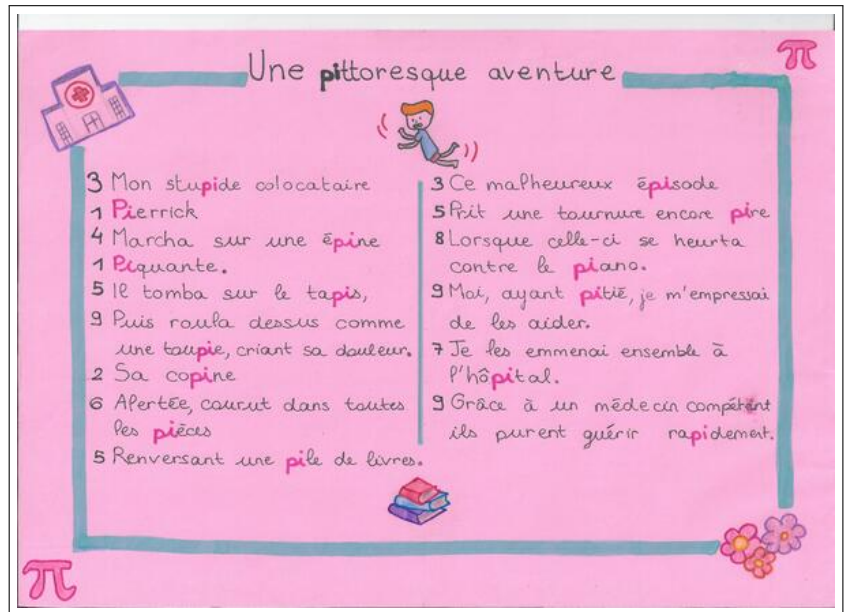 π
Une pittoresque aventure
3 Mon stupide colocataire
1 Pierrick
4 Marcha sur une épine
1 Piquante.
5 Il tomba sur le tapis,
9 Puis roula dessus comme
une toupie, criant sa douleur.
2 Sa copine
6 Alertée, courut dans toutes
les pièces
5 Renversant une pile de livres.
3 Ce malheureux épisode
5 Prit une tournure encore pire
8 Lorsque celle-ci se heurta
contre le piano.
9 Moi, ayant pitié, je m'empressai
de les aider.
7 Je les emmenai ensemble à
l'hôpital.
9 Grâce à un médecin compétent
ils purent guérir rapidement.
π